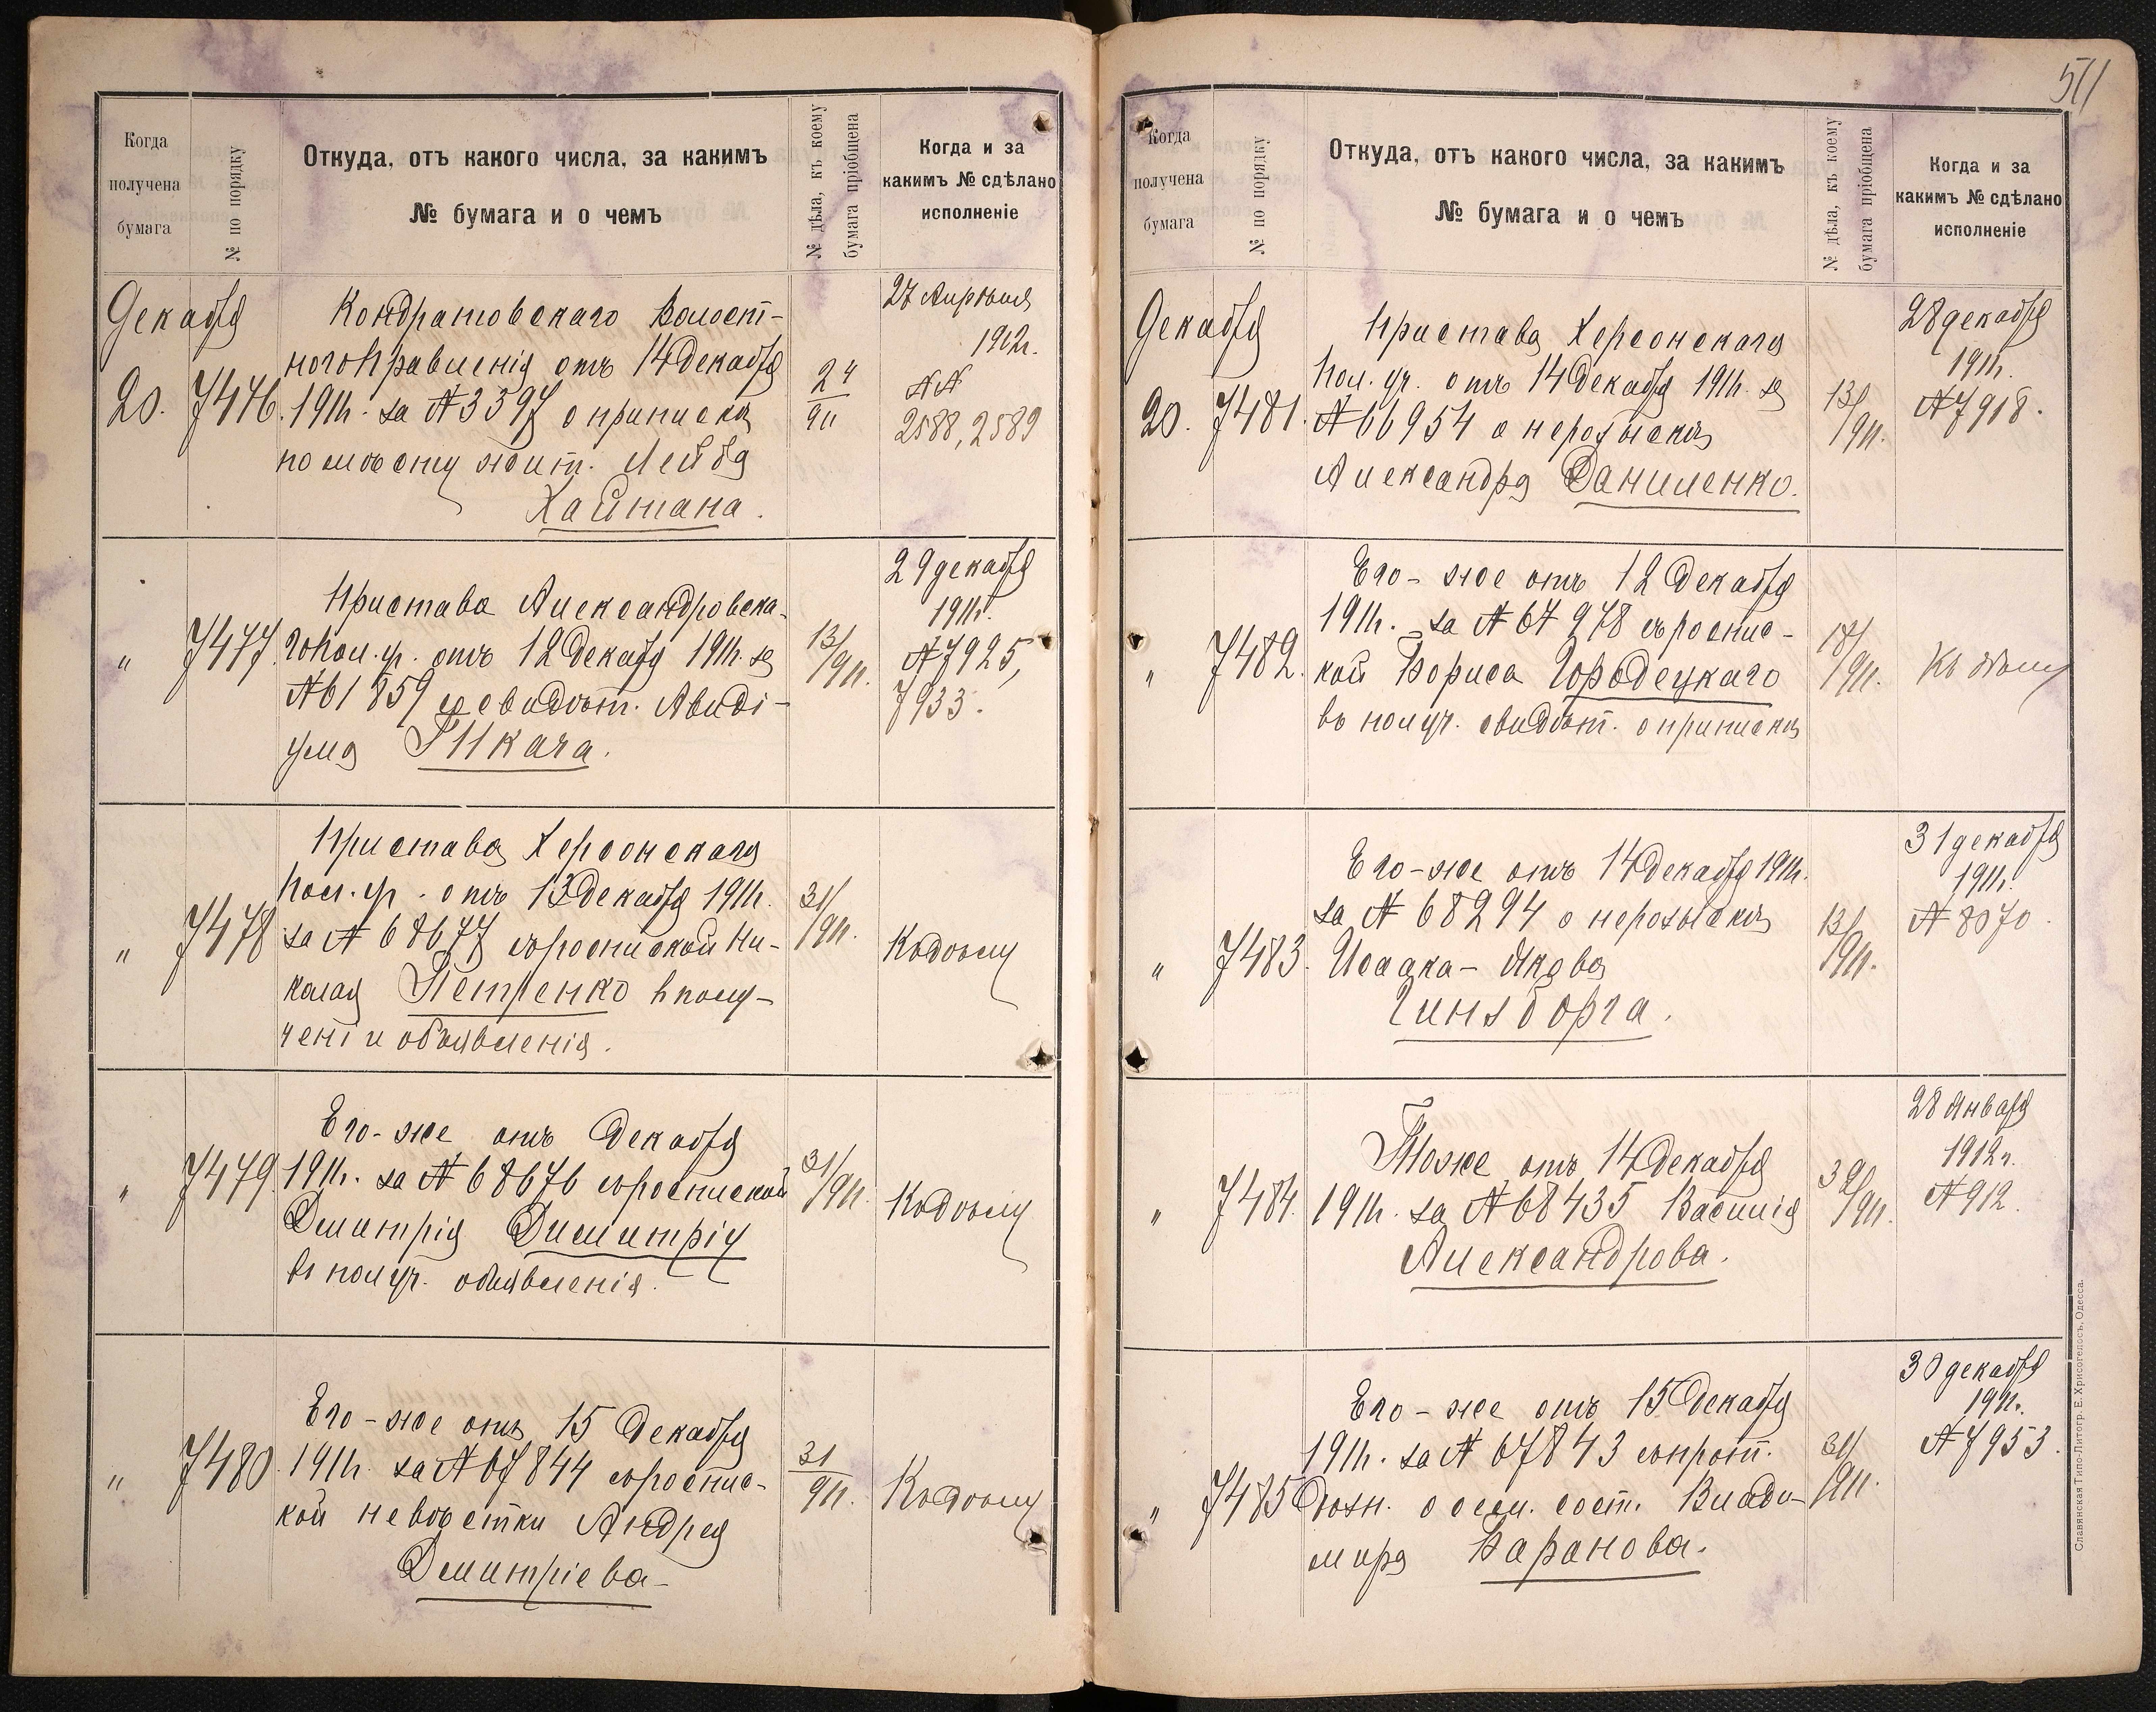 511
Когда
получена
бумага
№ по порядку
Откуда, отъ какого числа, за какимъ
№ бумага и о чемъ
№ дѣла, къ коему
бумага пріобщена
Когда и за
какимъ № сдѣлано
исполненіе
Декабря
20.
7476.
Кондратовскаго Волост-
ного Правленія отъ 14 Декабря
1911г. за № 3397 о припискѣ
по мѣсту жит. Лейба
Хайтана.
24
911
27 Апрѣля
1912г.
№№
2588, 2589
"
7477.
Пристава Александровска-
го пол. уч. отъ 12 Декабря 1911г. за
№ 61859 со свидѣт.
Ткача.
13/911.
29 декабря
1911г.
№ 7925,
7933.
"
7478
Пристава Херсонскаго
пол. уч. отъ 13 Декабря 1911г.
за № 68677 съ роспиской Ни-
колая Петренко въ полу-
чені и объявленія.
31/911.
Къ дѣлу
"
7479.
Его-же отъ Декабря
1911г. за № 68676 съ роспиской
Дмитрія Димитріу
въ получ. объявленія.
31/911.
Къ дѣлу
"
7480.
Его-же отъ 15 Декабря
1911г. за № 67844 съ роспис-
кой невѣстки Андрея
Дмитріева
31
911.
Къ дѣлу
Когда
получена
бумага
№ по порядку
Откуда, отъ какого числа, за какимъ
№ бумага и о чемъ
№ дѣла, къ коему
бумага пріобщена
Когда и за
какимъ № сдѣлано
исполненіе
Декабря
20.
7481.
Пристава Херсонскаго
Пол. уч. отъ 14 Декабря 1911г. за
№ 66954 о нерозыскѣ
Александра Даниленко.
13/911.
28 декабря
1911г.
№ 7918.
"
7482.
Его-же отъ 12 Декабря
1911г. за № 67978 съ роспис-
кой Бориса Городецкаго
въ получ. свидѣт. о припискѣ
18/911.
Къ дѣлу
"
7483.
Его-же отъ 14 Декабря 1911г.
за № 68294 о нерозыскѣ
Исаака-Якова
Гинзборга.
13/911.
31 декабря
1911г.
№ 8070.
"
7484.
Тоже отъ 14 Декабря
1911г. за № 68435 Василія
Александрова.
32/911.
28 Января
1912г.
№ 912.
"
7485
Его-же отъ 15 Декабря
1911г. за № 67843 съ прот.
дозн. о сем. сост. Влади-
мира Баранова.
31/911.
30 декабря
1911г.
№ 7953.
Славянская Типо-Литогр. Е. Хрисогелосъ, Одесса.